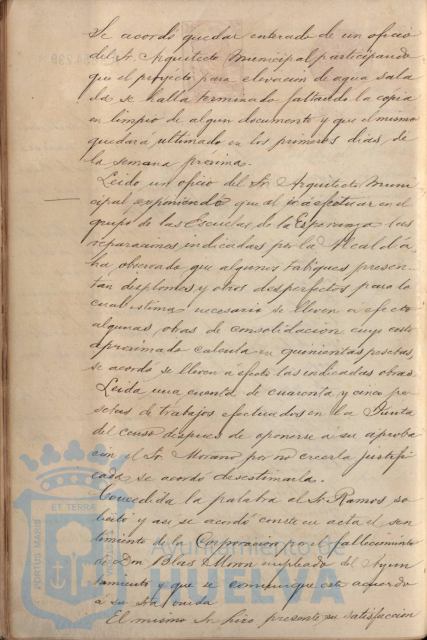 Se acordó quedar enterado de un oficio
del Sr. Arquitecto Municipal participando
que el proyecto para elevacion de agua sala
da se halla terminado faltando la copia
en limpio de algun documento y que el mismo
quedará ultimado en los primeros dias de
la semana próxima.
Leido un oficio del Sr. Arquitecto Muni
cipal exponiendo que al ir á efectuar en el
grupo de las Escuelas de la Esperanza las
reparaciones indicadas por la Alcaldia
ha observado que algunos tabiques presen-
tan desplomes y otros desperfectos para lo
cual estima necesario se lleven á efecto
algunas obras de consolidación cuyo coste
aproximado calcula en quinientas pesetas,
se acordó se lleven á efecto las indicadas obras.
Leida una cuenta de cuarenta y cinco pe
setas de trabajos efectuados en la Junta
del censo despues de oponerse á su aproba
cion el Sr. Morano por no creerla justifi
cada, se acordó desestimarla.
Concedida la palabra al Sr. Ramos so
licitó y asi se acordó conste en acta el sen
timiento de la Corporacion por el fallecimiento
de Don Blas Moron empleado del Ayun
tamiento y que se comunique este acuerdo
á su Sra. viuda
El mismo Sr. hizo presente su satisfacción
PORTUS MARIS
ET TERRÆ
Ayuntamiento de
HUELVA